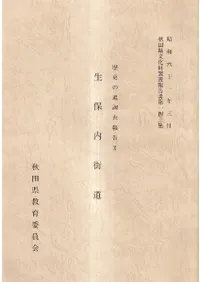 昭和六十一年三月
秋田県文化財調査報告書第一四三集
歴史の道調査報告
生保内街道
秋田県教育委員会